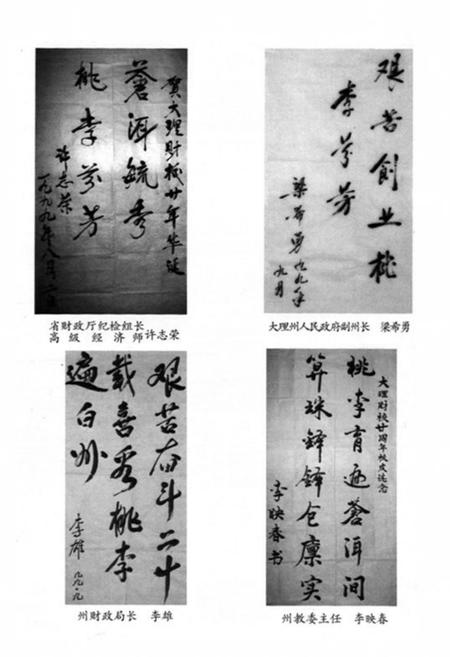 贺大理财校廿年华诞
苍洱毓秀
桃李芬芳
许志荣
一九九九年八月二日
省财政厅纪检组长
高级经济师许志荣
艰苦创业桃
李芬芳
梁希勇九九年
九月
大理州人民政府副州长 梁希勇
艰苦奋斗二十
载喜看桃李
遍白州
李雄 九九.九
州财政局长 李雄
大理财校廿周年校庆志念
桃李育遍蒼洱间
算珠铎铎仓廪实
李映春书
州教委主任 李映春